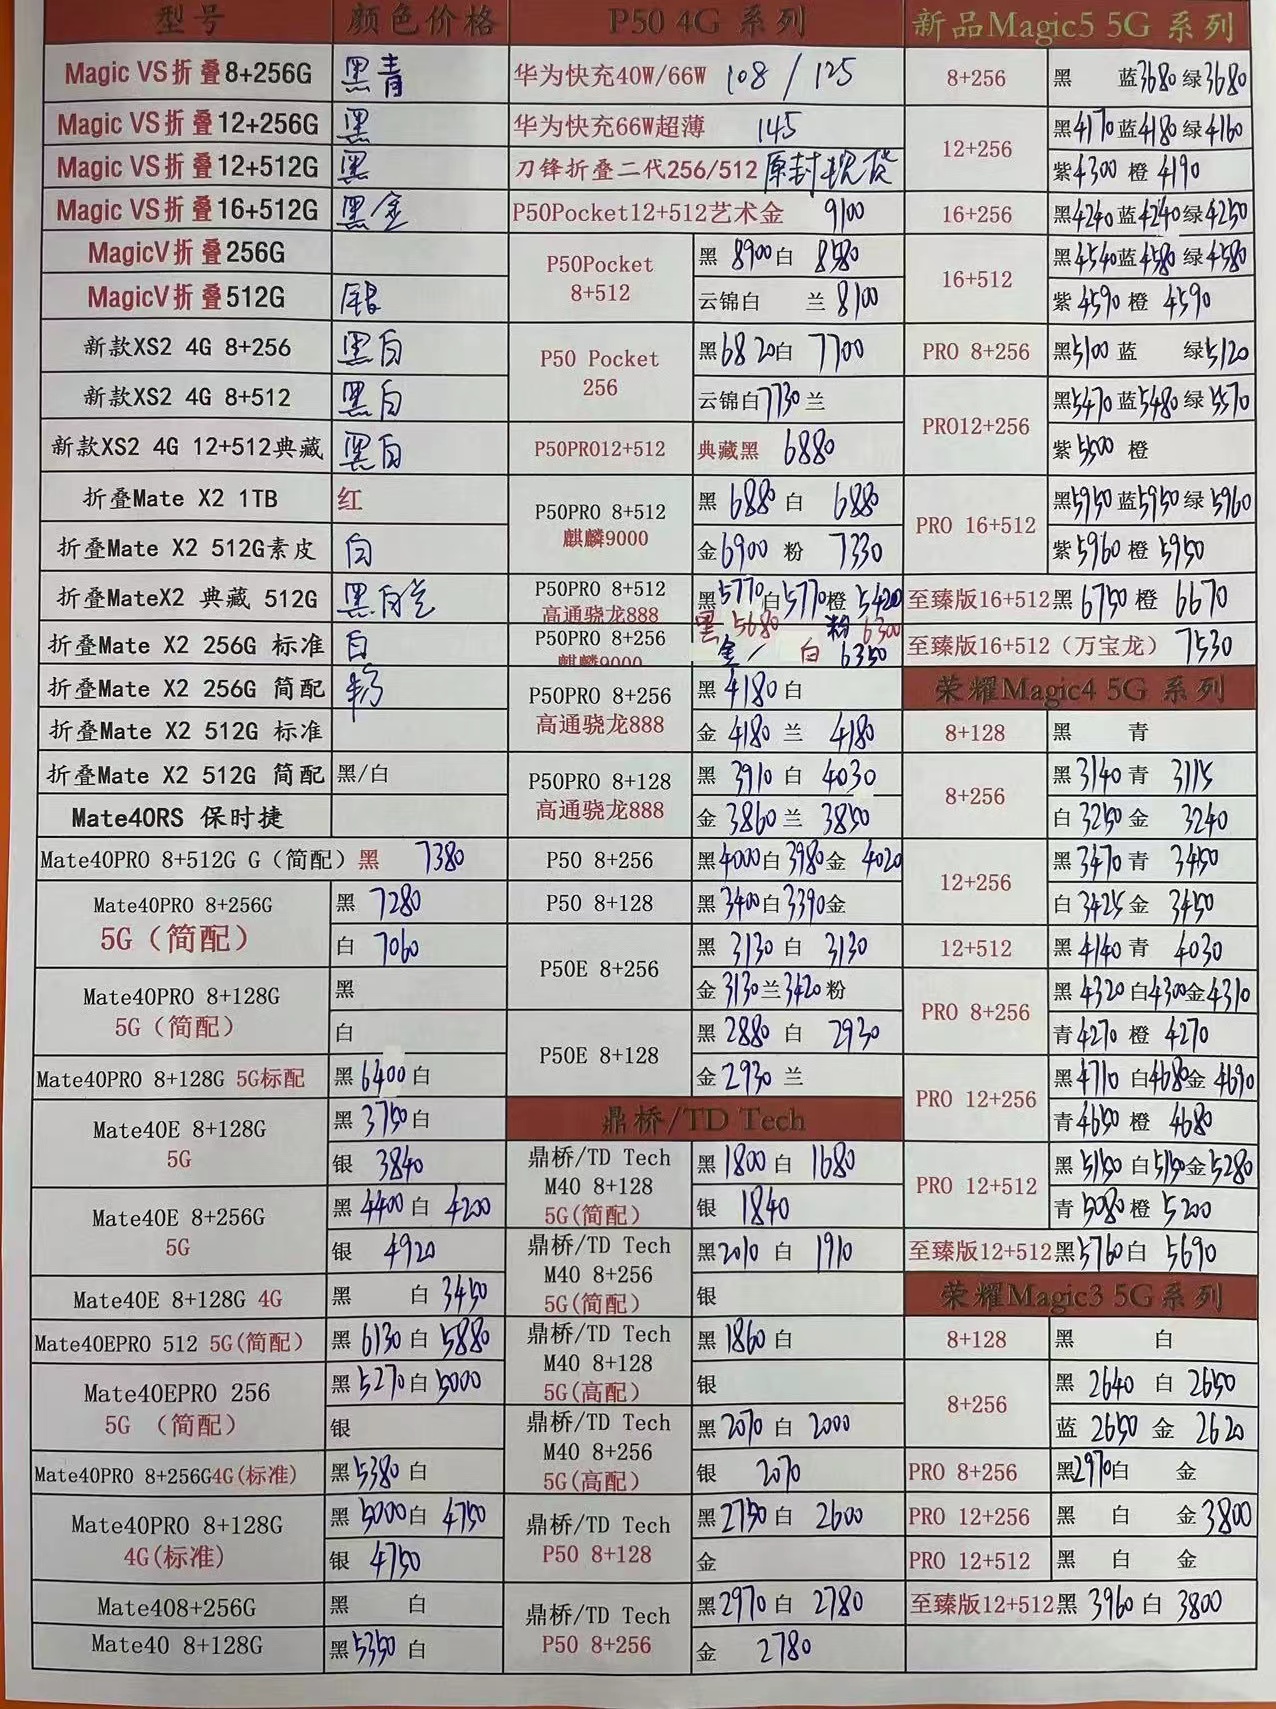 型号 颜色价格 P50 4G 系列 新品Magic5 5G 系列
Magic VS折叠8+256G 黑青
Magic VS折叠12+256G 黑
Magic VS折叠12+512G 黑
Magic VS折叠16+512G 黑金
MagicV折叠256G
MagicV折叠512G 银
新款XS2 4G 8+256 黑白
新款XS2 4G 8+512 黑白
新款XS2 4G 12+512典藏 黑白
折叠Mate X2 1TB 红
折叠Mate X2 512G素皮 白
折叠MateX2 典藏 512G 黑白兰
折叠Mate X2 256G 标准 白
折叠Mate X2 256G 简配 粉
折叠Mate X2 512G 标准
折叠Mate X2 512G 简配 黑/白
Mate40RS 保时捷
Mate40PRO 8+512G G（简配）黑 7380
Mate40PRO 8+256G
5G（简配）
黑 7280
白 7060
Mate40PRO 8+128G
5G（简配）
黑
白
Mate40PRO 8+128G 5G标配 黑6400白
Mate40E 8+128G
5G
黑3750白
银 3840
Mate40E 8+256G
5G
黑4400白 4200
银 4920
Mate40E 8+128G 4G 黑 白3450
Mate40EPRO 512 5G(简配) 黑 6130白 5880
Mate40EPRO 256
5G （简配）
黑5270白5000
银
Mate40PRO 8+256G4G(标准) 黑5380白
Mate40PRO 8+128G
4G(标准)
黑5000白 4750
银 4750
Mate408+256G 黑 白
Mate40 8+128G 黑5350白
华为快充40W/66W 108 / 125
华为快充66W超薄 145
刀锋折叠二代256/512 原封现货
P50Pocket12+512艺术金 9100
P50Pocket
8+512
黑 8900白 8580
云锦白 兰 8100
P50 Pocket
256
黑6820白 7700
云锦白7730兰
P50PRO12+512 典藏黑 6880
P50PRO 8+512
麒麟9000
黑 6880 白 6880
金6900 粉 7330
P50PRO 8+512
高通骁龙888
黑5770白5770橙 5420
P50PRO 8+256
麒麟9000
黑 5680 粉 6300
金 / 白 6350
P50PRO 8+256
高通骁龙888
黑 4180白
金 4180 兰 4180
P50PRO 8+128
高通骁龙888
黑 3910 白 4030
金 3860 兰 3850
P50 8+256 黑4000白3980金 4020
P50 8+128 黑3400白3390金
P50E 8+256
黑 3130 白 3130
金3130兰3420粉
P50E 8+128
黑 2880 白 2930
金2930 兰
鼎桥/TD Tech
鼎桥/TD Tech
M40 8+128
5G(简配)
黑1800白 1680
银 1840
鼎桥/TD Tech
M40 8+256
5G(简配)
黑2010 白 1910
银
鼎桥/TD Tech
M40 8+128
5G(高配)
黑1860白
银
鼎桥/TD Tech
M40 8+256
5G(高配)
黑2070白 2000
银 2070
鼎桥/TD Tech
P50 8+128
黑2750白 2600
金
鼎桥/TD Tech
P50 8+256
黑2970白 2780
金 2780
8+256 黑 蓝3680绿3680
12+256
黑4170蓝4180绿4160
紫4300 橙 4190
16+256 黑4240蓝4240绿4250
16+512
黑4540蓝4580绿4580
紫4590 橙 4590
PRO 8+256 黑5100 蓝 绿5120
PRO12+256
黑5470蓝5480绿5570
紫5500 橙
PRO 16+512
黑5950蓝5950绿5960
紫5960橙 5950
至臻版16+512黑 6750橙 6670
至臻版16+512（万宝龙） 7530
荣耀Magic4 5G 系列
8+128 黑 青
8+256
黑3140青 3115
白3250金 3240
12+256
黑3470青 3450
白3425金 3450
12+512 黑4140青 4030
PRO 8+256
黑4320白4300金4310
青4270橙 4270
PRO 12+256
黑4710 白4680金4690
青4650橙 4680
PRO 12+512
黑5150白5150金5280
青5080橙 5200
至臻版12+512黑5760白 5690
荣耀Magic3 5G系列
8+128 黑 白
8+256
黑 2640 白 2650
蓝 2650 金 2620
PRO 8+256 黑2970白 金
PRO 12+256 黑 白 金3800
PRO 12+512 黑 白 金
至臻版12+512黑 3960白 3800